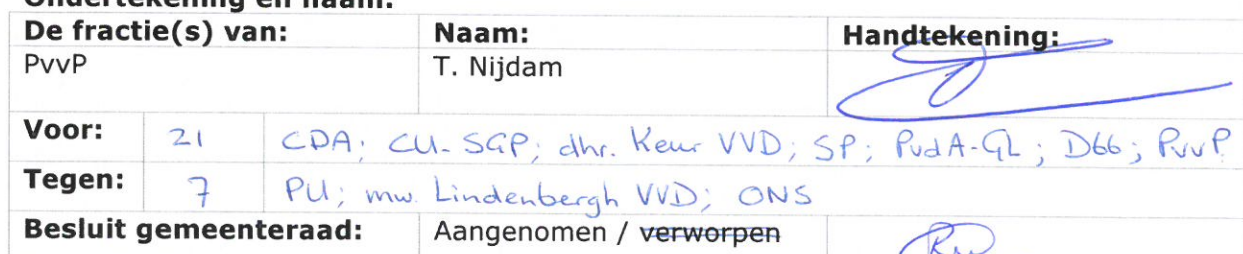 Ondertekening en naam:
De fractie(s) van: Naam: Handtekening:
PvvP T. Nijdam
Voor: 21 CDA; CU-SGP; dhr. Keur VVD; SP; PvdA-GL; D66; PvvP
Tegen: 7 PU; mw. Lindenbergh VVD; ONS
Besluit gemeenteraad: Aangenomen / verworpen